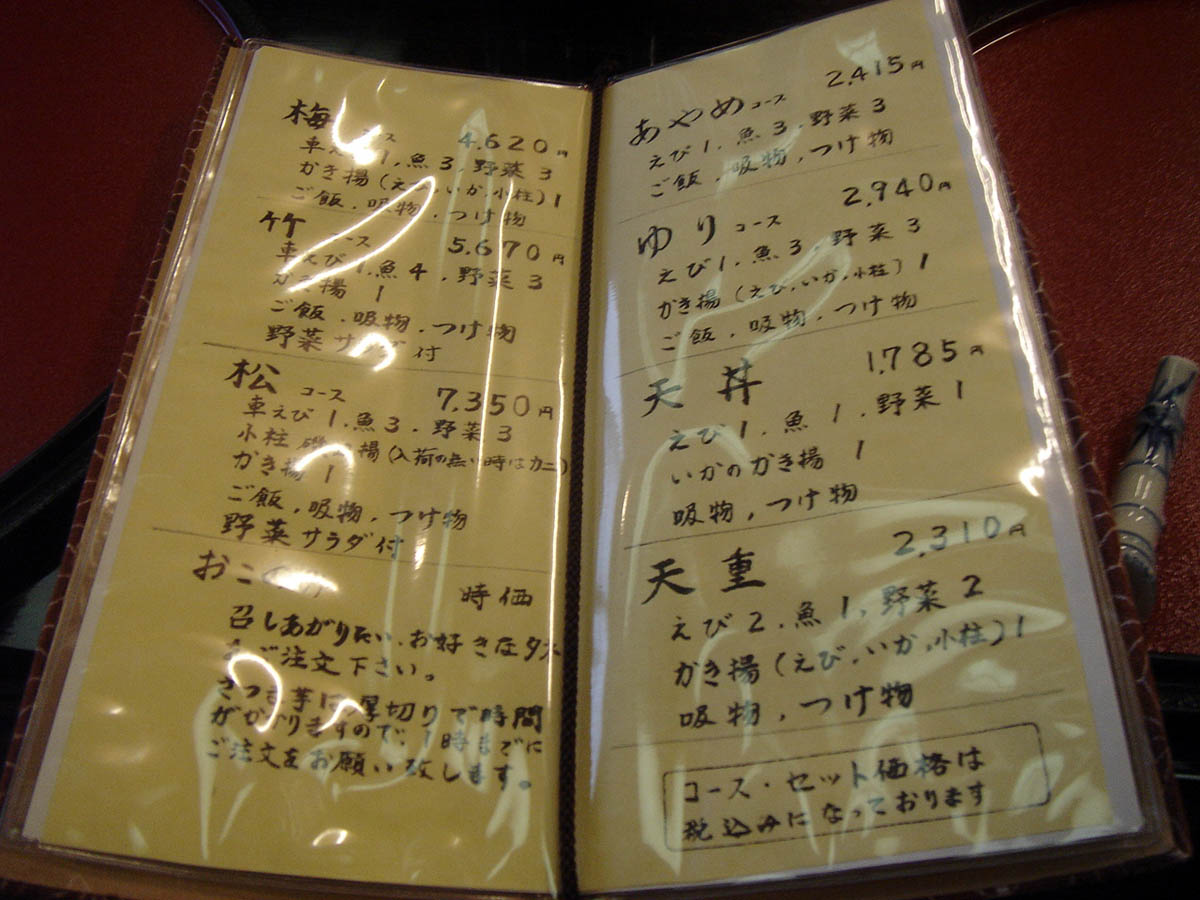 梅 コース 4,620円
車えび1,魚3,野菜3
かき揚(えび,いか,小柱)1
ご飯,吸物,つけ物
竹 コース 5,670円
車えび1,魚4,野菜3
かき揚 1
ご飯,吸物,つけ物
野菜サラダ付
松 コース 7,350円
車えび1,魚3,野菜3
小柱 揚(入荷の無い時はカニ)
かき揚 1
ご飯,吸物,つけ物
野菜サラダ付
おこのみ 時価
召しあがりたい,お好きな
ご注文下さい。
さつま芋は厚切りで時間
がかかりますので,1時までに
ご注文をお願い致します。
あやめコース 2,415円
えび1,魚3,野菜3
ご飯,吸物,つけ物
ゆりコース 2,940円
えび1,魚3,野菜3
かき揚(えび,いか,小柱)1
ご飯,吸物,つけ物
天丼 1,785円
えび1,魚1,野菜1
いかのかき揚 1
吸物,つけ物
天重 2,310円
えび2,魚1,野菜2
かき揚(えび,いか,小柱)1
吸物,つけ物
コース・セット価格は
税込みになっております